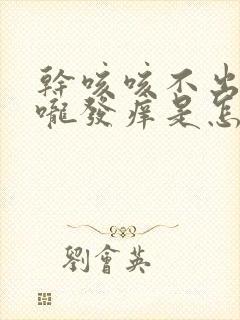 幹咳咳不出
嚨發痒是怎
劉會英